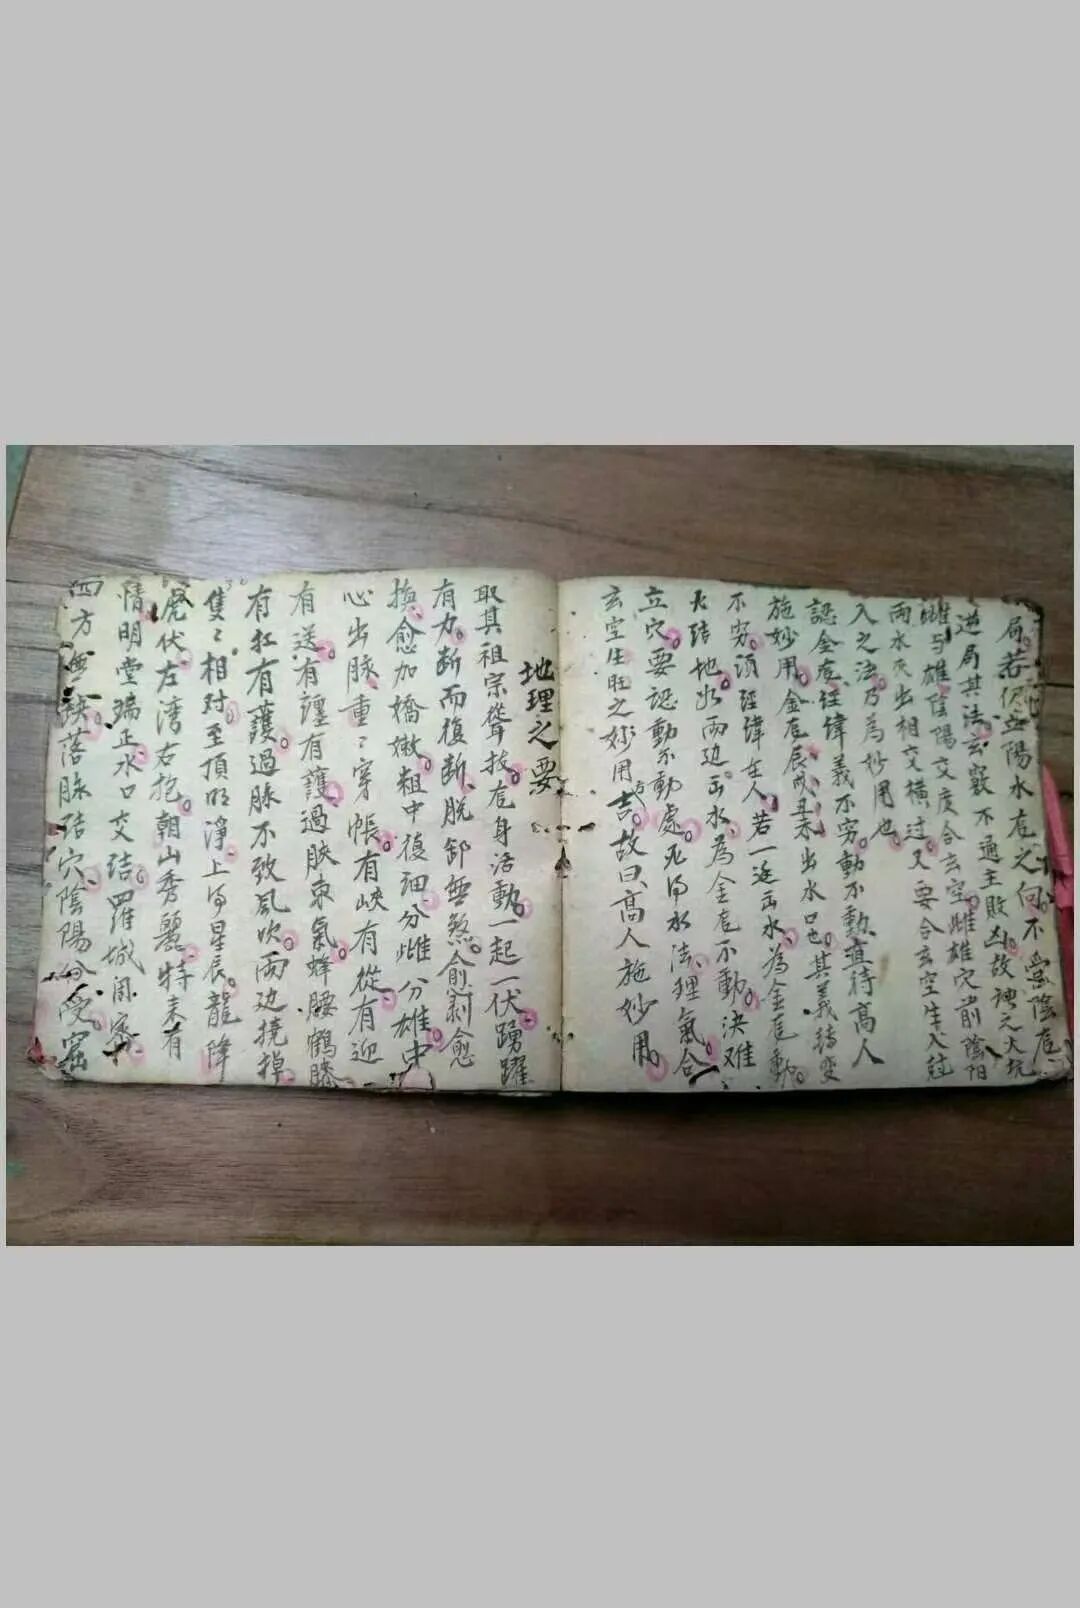 局。若侭立陽水尨之向。不當陰尨
逆局其法。玄竅不通主敗凶。故號之大坑
雌与雄陰陽交度合玄空。雌雄穴前陰陽
兩水交出相交橫过。又要合玄空生入尅
入之法。乃為妙用也。
認金尨、經偉義不窮。動不動直待高人
施妙用。金尨辰戌丑未出水口也。其義轉变
不穷。須經偉在人。若一边出水、為金尨動。
大結地出兩边出水、為金尨不動。決难
立穴。要認動不動處。死得水法、理氣合
玄空生旺之妙用吉。故曰高人施妙用。
地理之要
取其祖宗聳拔。尨身活動。一起一伏踴躍
有力。断而復断、脱卸無煞。愈剥愈
換、愈加嬌嫩。粗中復细。分雌分雄。中
心出脉、重々穿帳。有峽有從、有迎
有送。有纏有護。過峽束氣、蜂腰鶴膝
有扛有護。過脉不致風吹。兩边撓棹
隻々相对。至頂明淨。上得星辰。龍降
虎伏。左湾右抱。朝山秀麗。特来有
情。明堂端正。水口交結。四羅城周密
四方無缺。落脉结穴。陰陽分受。窟